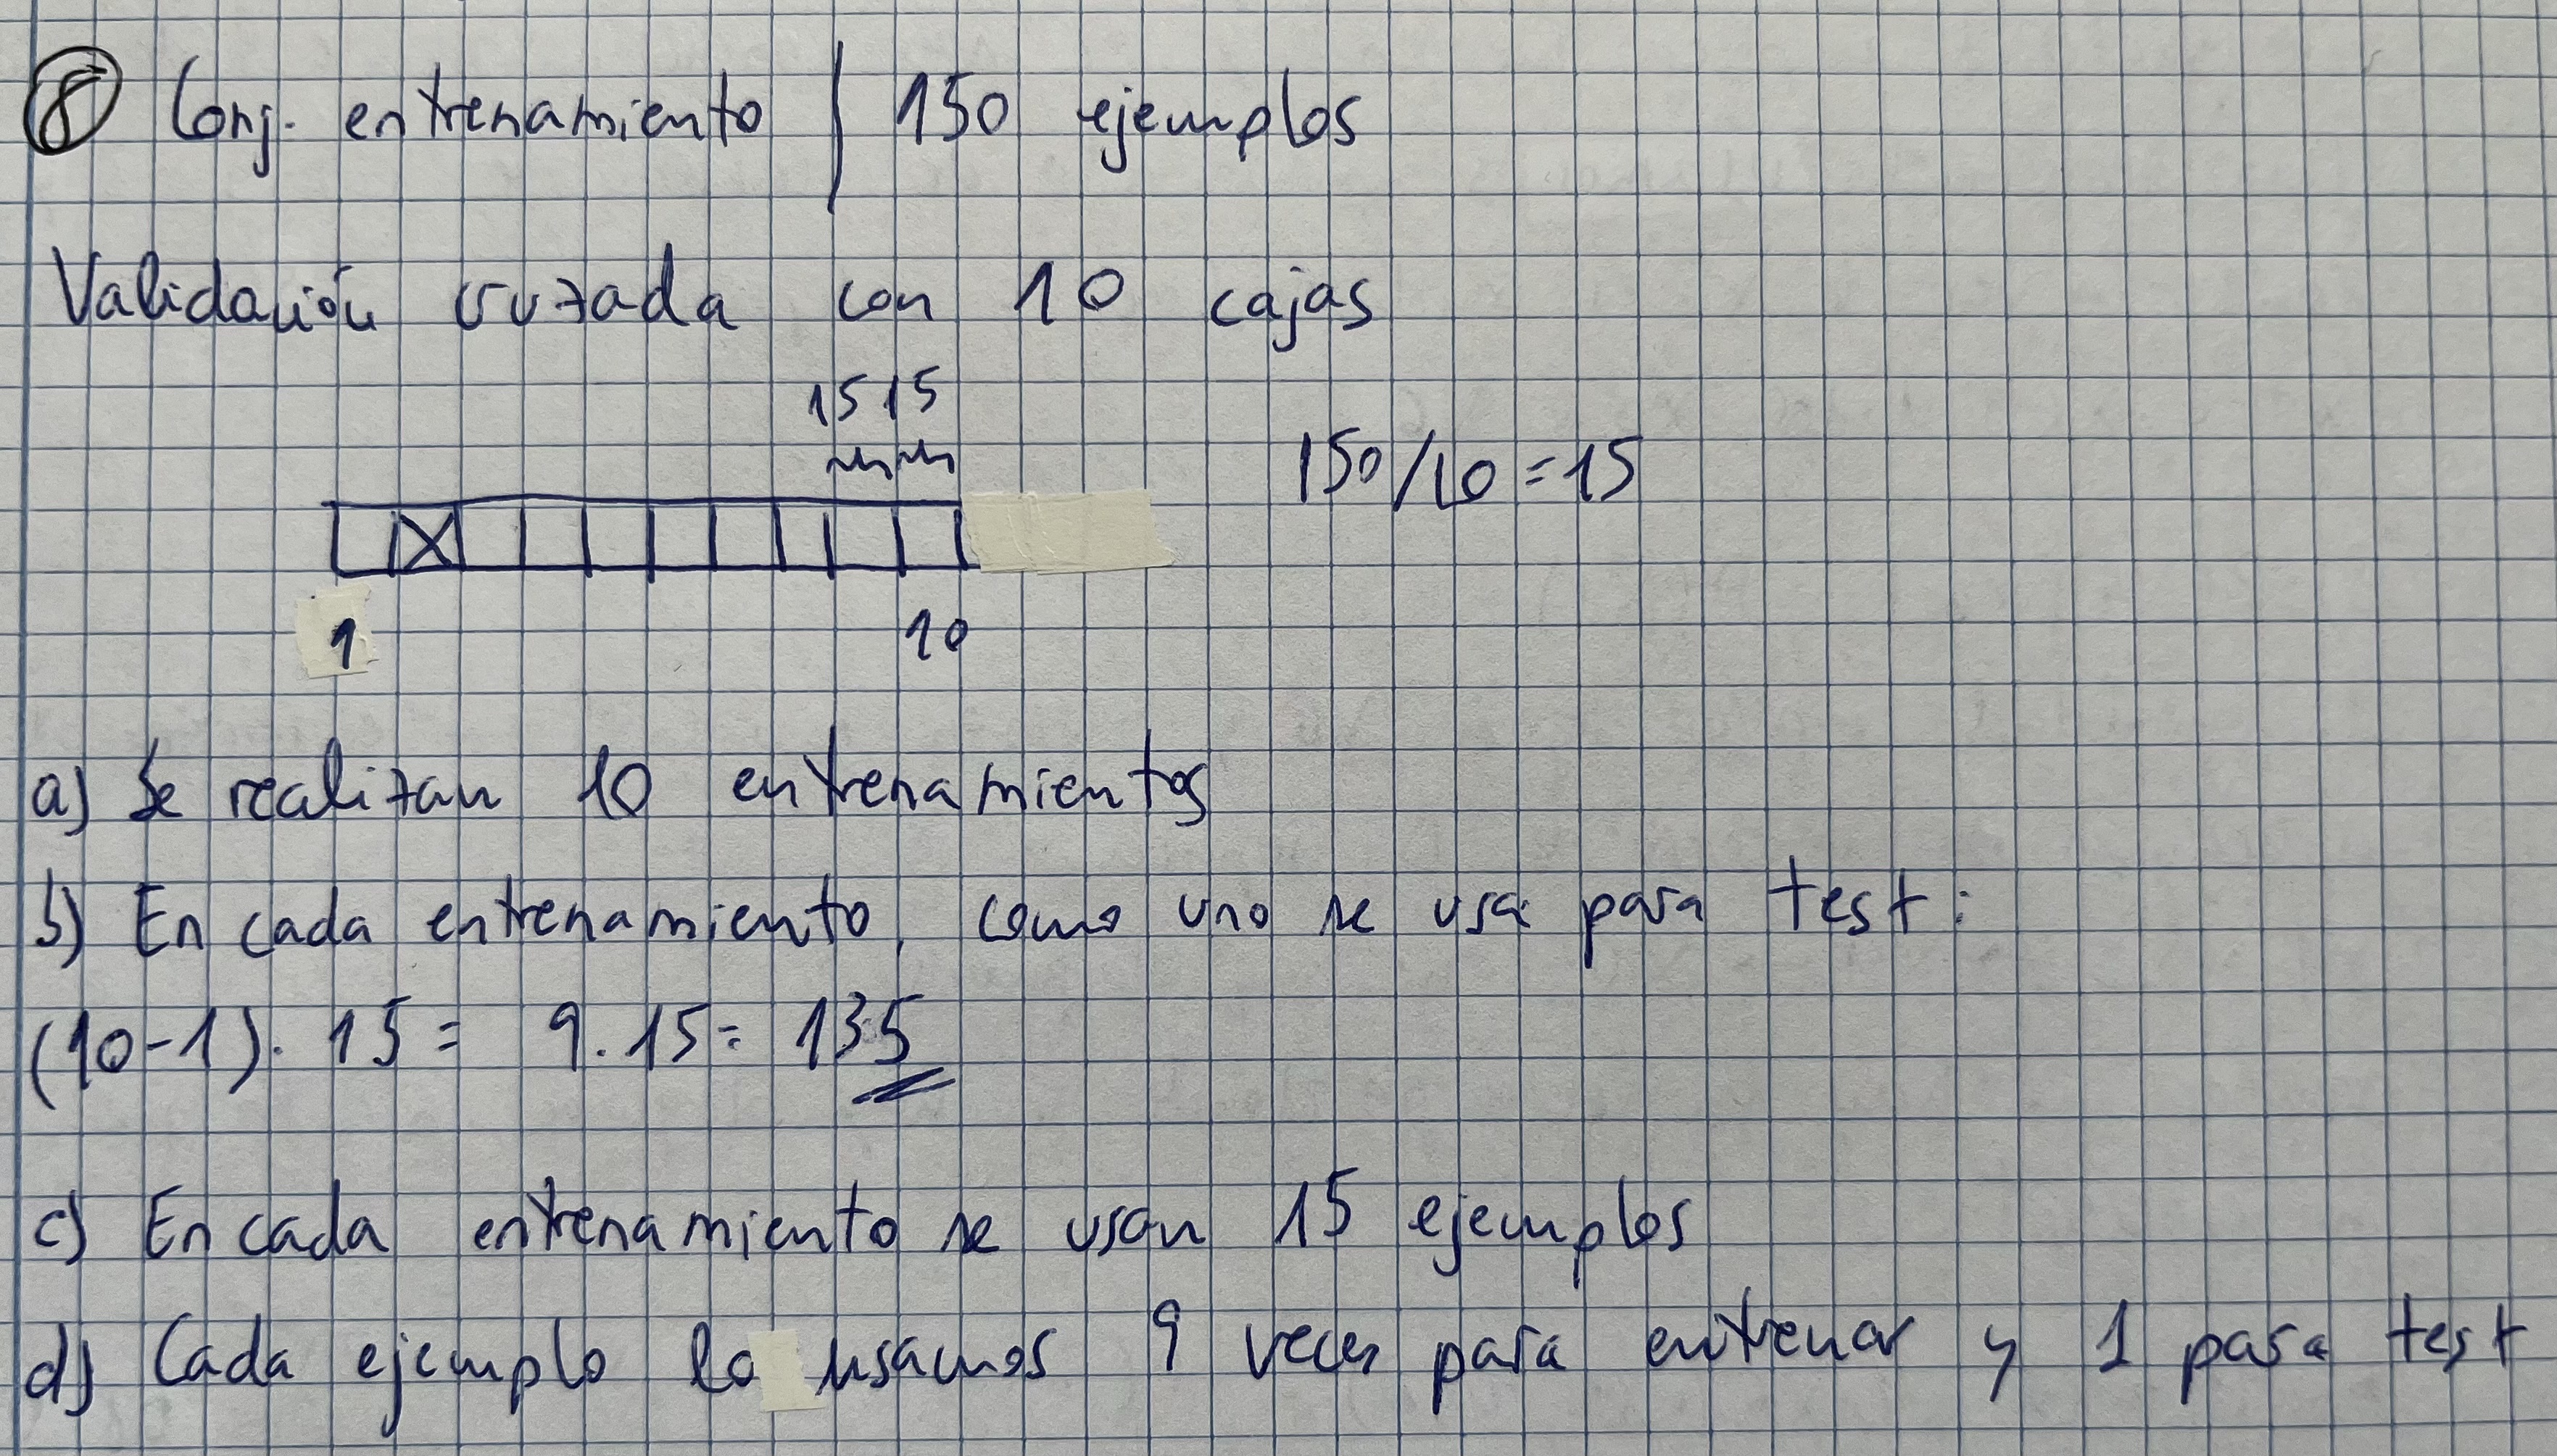 8 Conj. entrenamiento | 150 ejemplos
Validación cruzada con 10 cajas
15 15
150/10 = 15
1 10
a) Se realizan 10 entrenamientos
b) En cada entrenamiento, como uno se usa para test:
(10-1). 15 = 9.15 = 135
c) En cada entrenamiento se usan 15 ejemplos
d) Cada ejemplo lo usamos 9 veces para entrenar y 1 para test